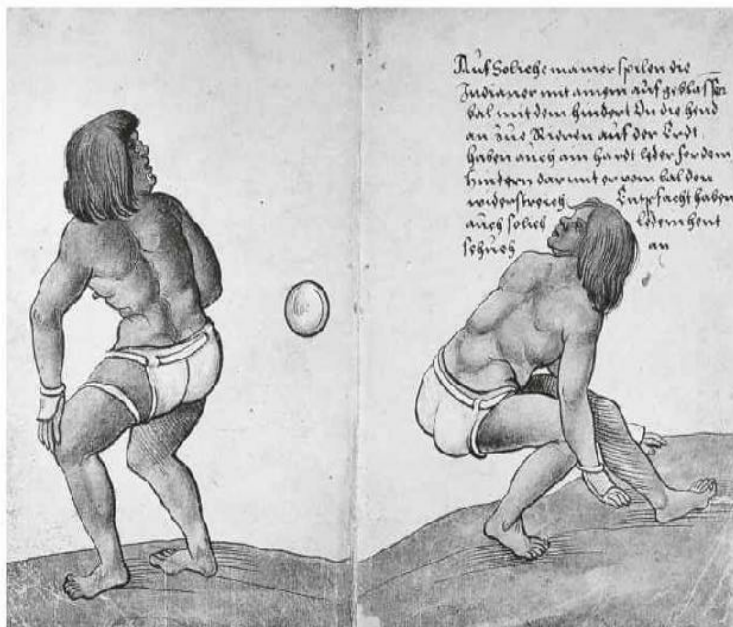 Auf Soliche manier spilen die
Indianer mit ainem aufgeblassen
bal mit dem hindert On die hend
an Zue Rieren auf der Erdt
haben auch ain hardt leder for dem
hindern dar mit er vom bal den
widerstreich Entpfacht haben
auch solich ledern hent
schuch an